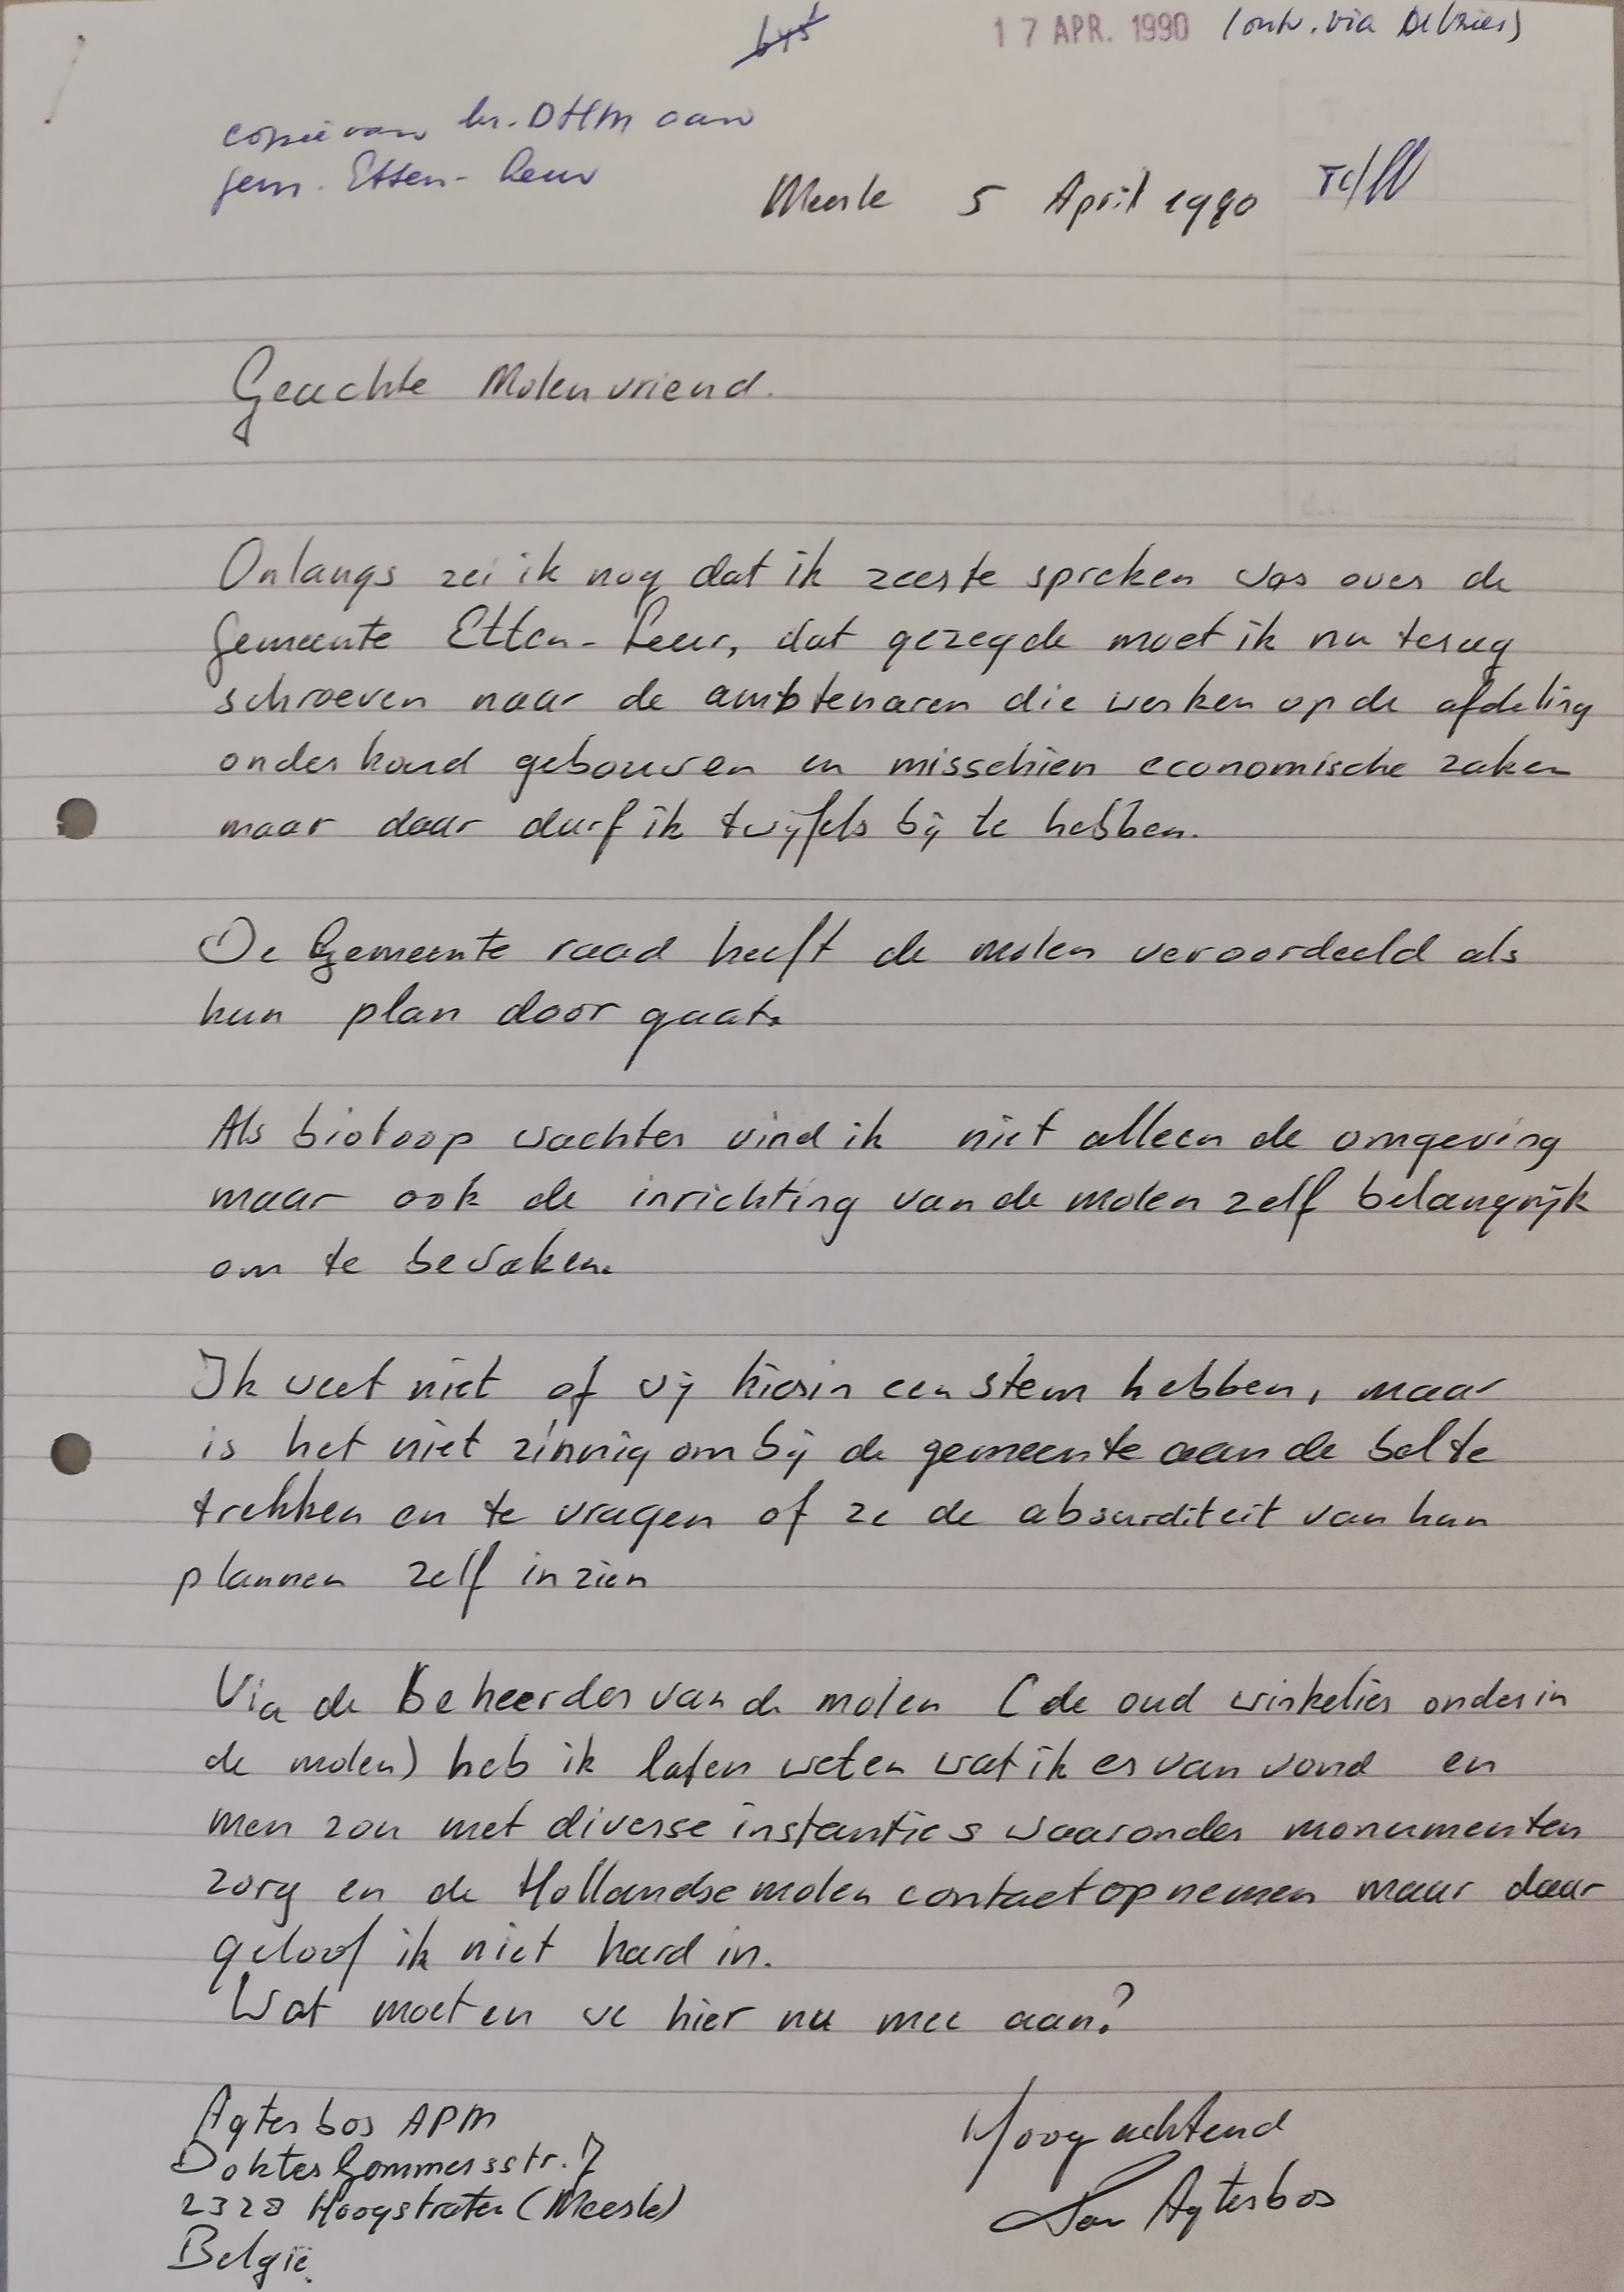 17 APR. 1990 (ontv. via De Vries)
copie van br. DHM aan
gem. Etten-Leur
Meerle 5 April 1990
Geachte Molenvriend.
Onlangs zei ik nog dat ik zeerste spreken was over de
Gemeente Etten-Leur, dat gezegde moet ik nu terug
schroeven naar de ambtenaren die werken op de afdeling
onderhoud gebouwen en misschien economische zaken
maar daar durf ik twijfels bij te hebben.
De Gemeente raad heeft de molen veroordeeld als
hun plan door gaat.
Als biotoop wachter vind ik niet alleen de omgeving
maar ook de inrichting van de molen zelf belangrijk
om te bewaken.
Ik weet niet of wij hierin een stem hebben, maar
is het niet zinnig om bij de gemeente aan de bel te
trekken en te vragen of ze de absurditeit van hun
plannen zelf inzien
Via de Beheerder van de molen (de oud winkelier onderin
de molen) heb ik laten weten wat ik er van vond en
men zou met diverse instanties waaronder monumenten
zorg en de Hollandse molen contact opnemen maar daar
geloof ik niet hard in.
Wat moeten we hier nu mee aan?
Agterbos APM
Dokter Gommersstr. 7
2328 Hoogstraten (Meerle)
België.
Hoogachtend
Agterbos